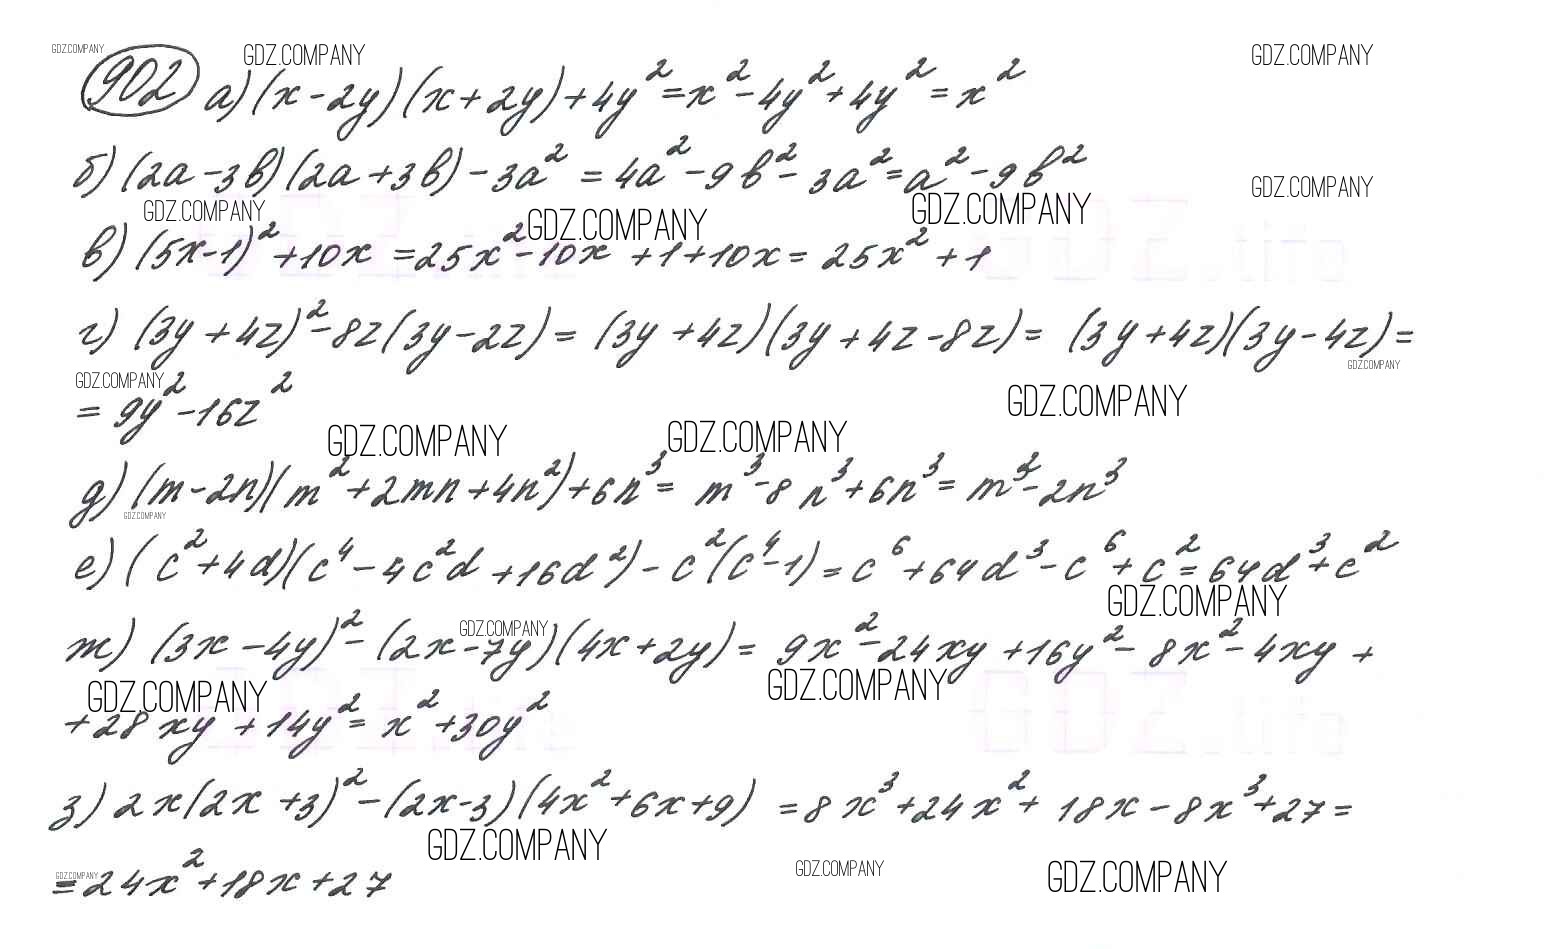 GDZ.COMPANY GDZ.COMPANY GDZ.COMPANY
902 а) (x-2y)(x+2y)+4y²=x²-4y²+4y²=x²
б) (2a-3b)(2a+3b)-3a²=4a²-9b²-3a²=a²-9b²
GDZ.COMPANY
GDZ.COMPANY GDZ.COMPANY GDZ.COMPANY
в) (5x-1)²+10x=25x²-10x+1+10x=25x²+1
г) (3y+4z)²-8z(3y-2z)=(3y+4z)(3y+4z-8z)=(3y+4z)(3y-4z)=
GDZ.COMPANY GDZ.COMPANY
=9y²-16z²
GDZ.COMPANY
GDZ.COMPANY GDZ.COMPANY
д) (m-2n)(m²+2mn+4n²)+6n³=m³-8n³+6n³=m³-2n³
GDZ.COMPANY
е) (c²+4d)(c⁴-4c²d+16d²)-c²(c⁴-1)=c⁶+64d³-c⁶+c²=64d³+c²
GDZ.COMPANY
GDZ.COMPANY
ж) (3x-4y)²-(2x-7y)(4x+2y)=9x²-24xy+16y²-8x²-4xy+
GDZ.COMPANY GDZ.COMPANY
+28xy+14y²=x²+30y²
з) 2x(2x+3)²-(2x-3)(4x²+6x+9)=8x³+24x²+18x-8x³+27=
GDZ.COMPANY
GDZ.COMPANY GDZ.COMPANY GDZ.COMPANY
=24x²+18x+27